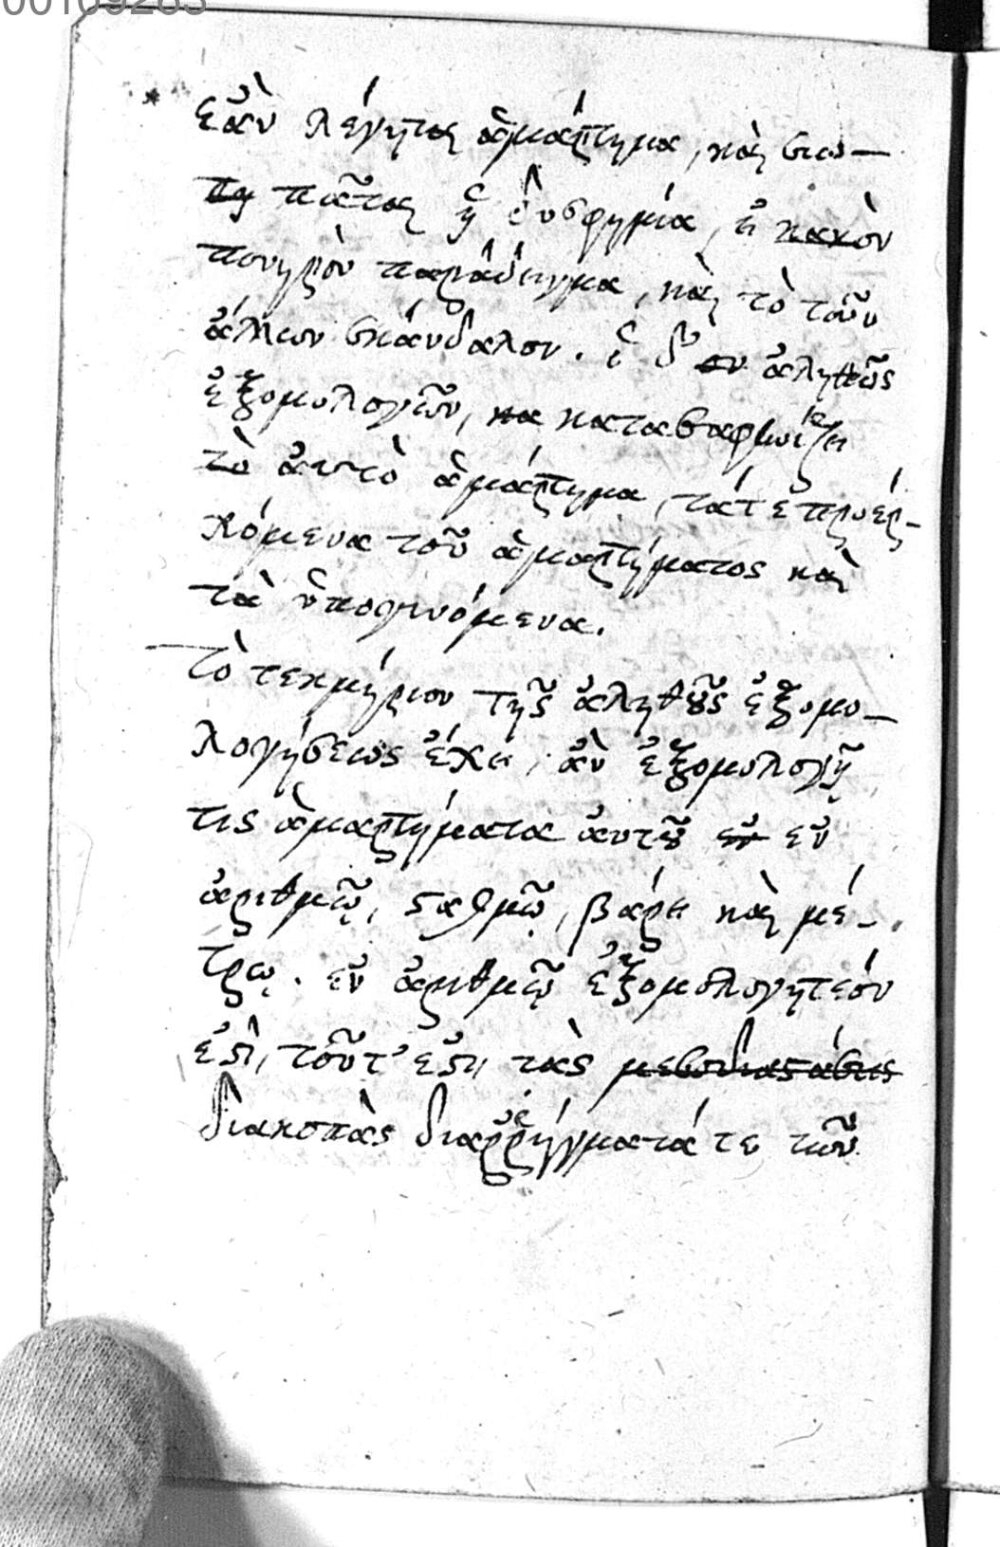 00109283
ἐὰν λέγηται ἁμάρτημα, καὶ σιω-
πᾶται ἡ δυσφημία, κακὸν
πονηρὸν παράδειγμα, καὶ τὸ τοῦν
ἄλλων σκάνδαλον. ὁ δ' ἀληθῶς
ἐξομολογῶν, κα κατασαφωνίζει
τὸ αὐτὸ ἁμάρτημα, τά τε προερ-
χόμενα τοῦ ἁμαρτήματος καὶ
τὰ ὑπογινόμενα.
Τὸ τεκμήριον τῆς ἀληθοῦς ἐξομο-
λογήσεως ἔχει, ἂν ἐξομολογῇ
τις ἁμαρτήματα αὐτοῦ ἐν ἐν
ἀριθμῷ, σταθμῷ, βάρει καὶ μέ-
τρῳ. ἐν ἀριθμῷ ἐξομολογητέον
ἐστὶ, τοῦτ' ἔστι, τὰς
διακοπὰς διαῤῥήγματά τε τῶν